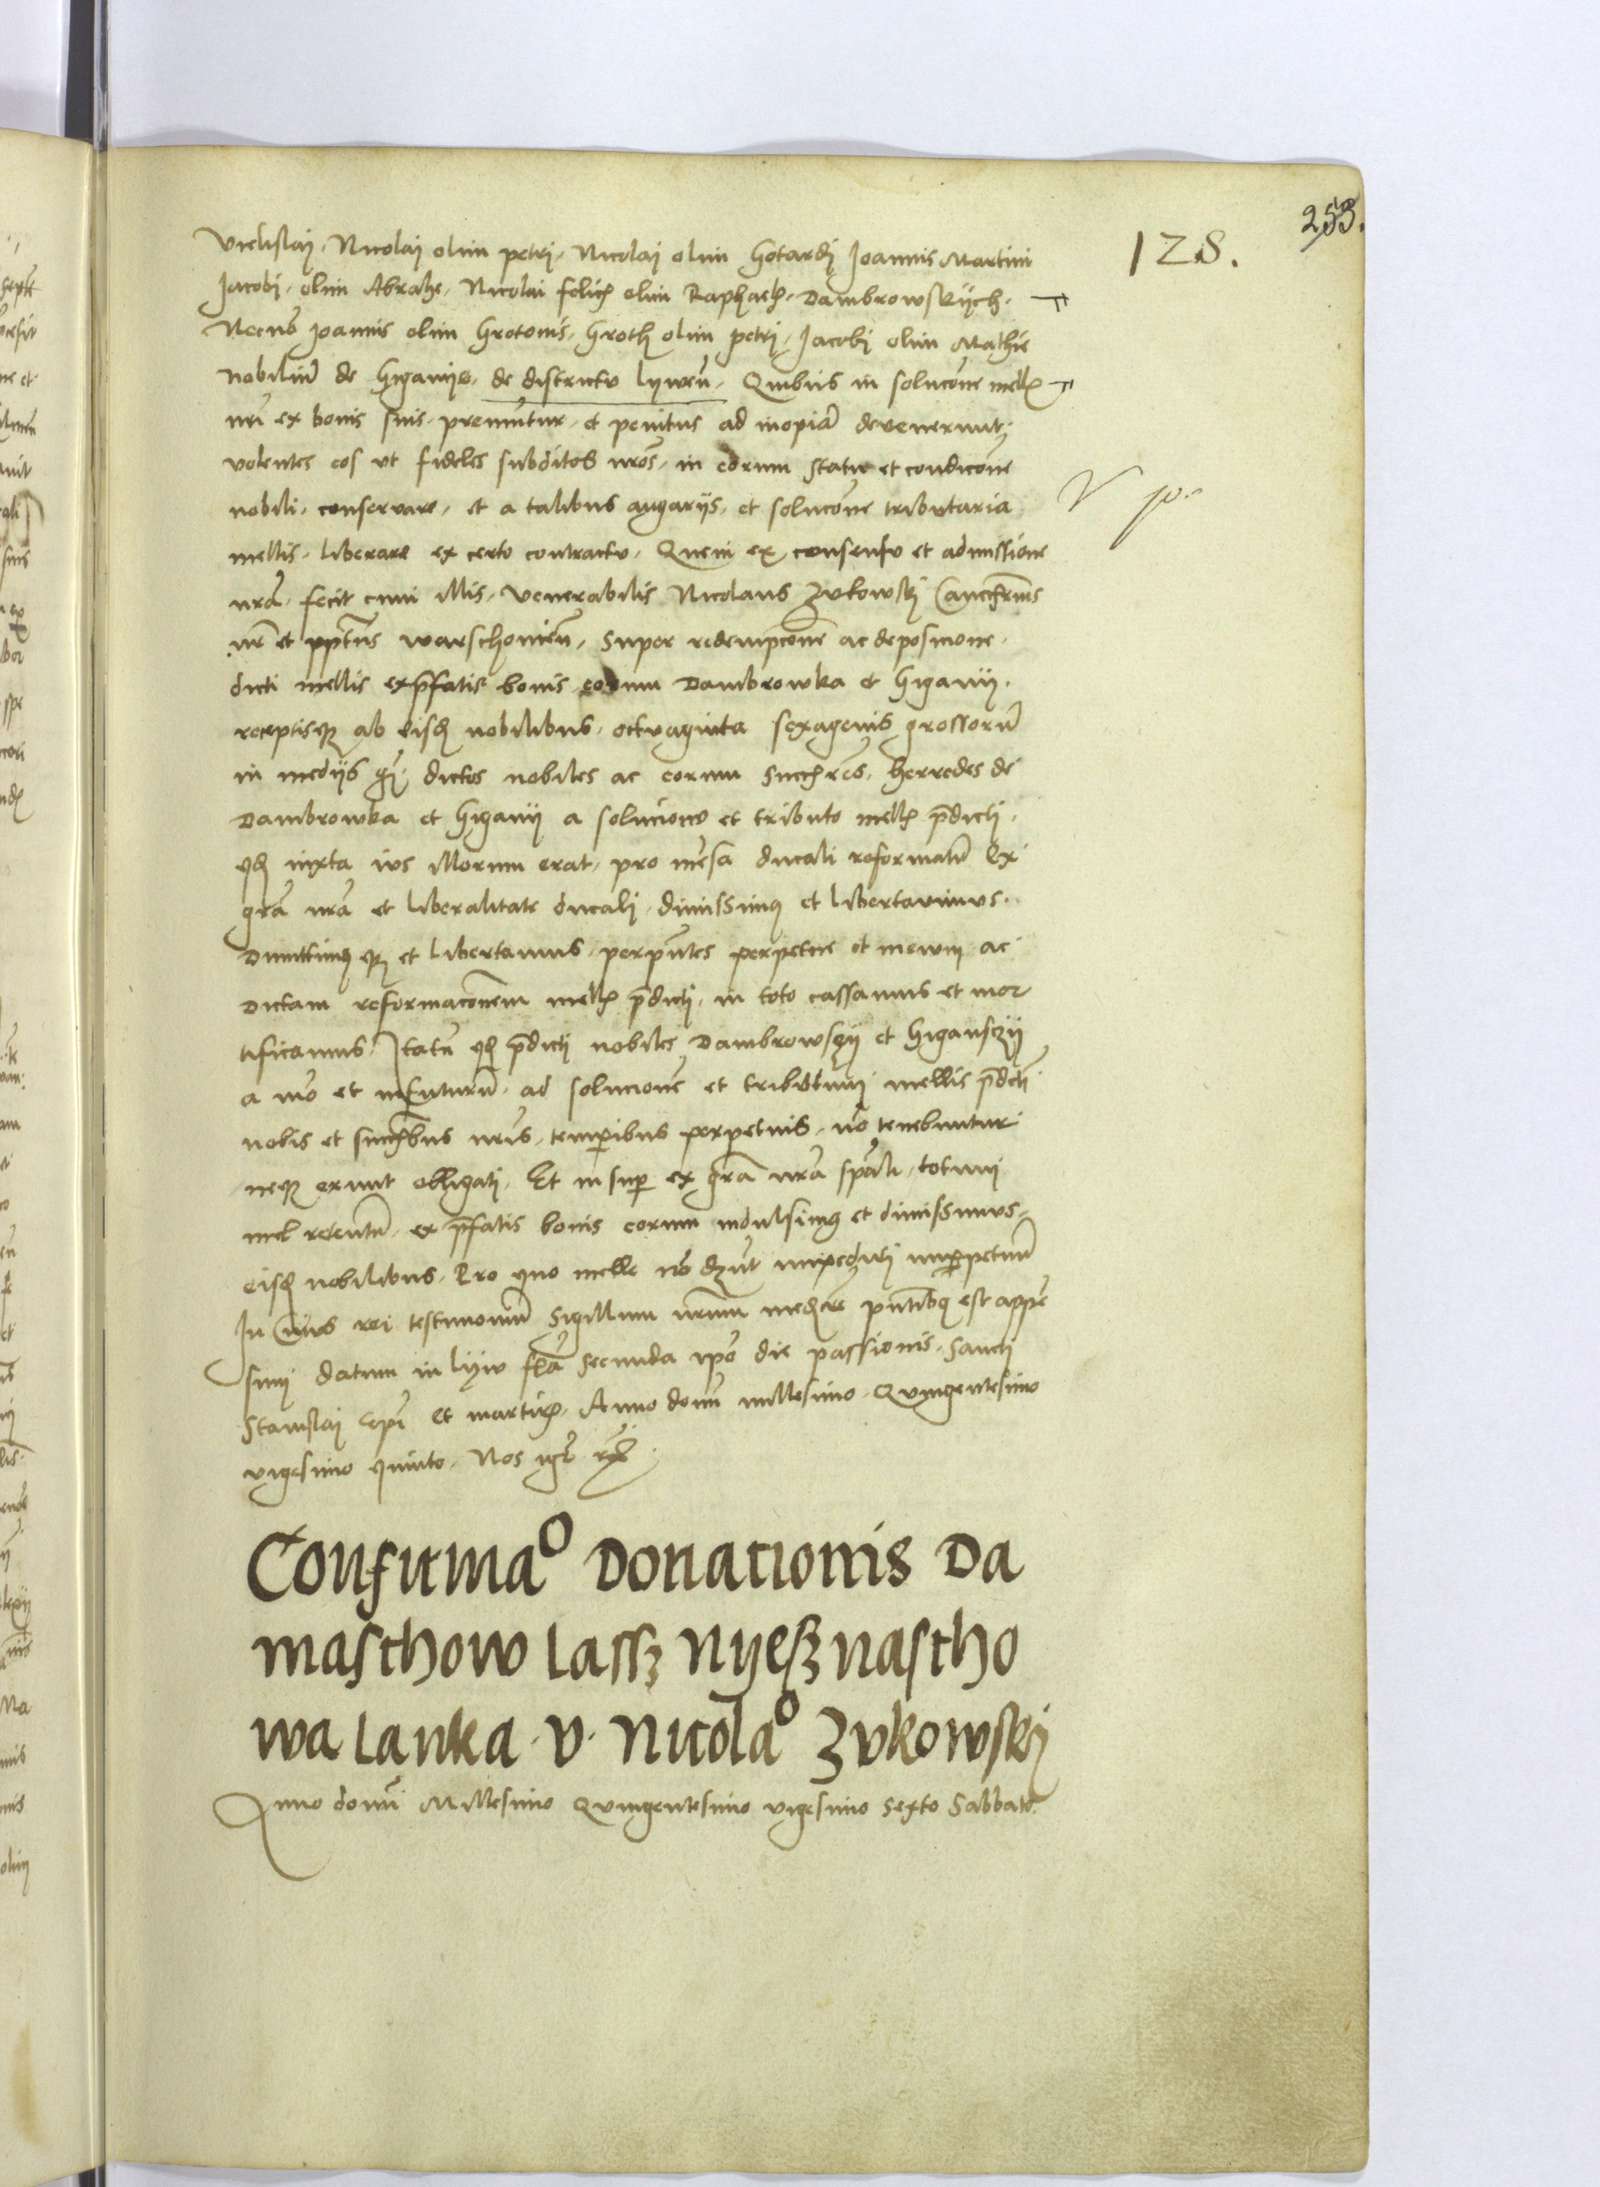 253.
128.
Vielislaij. Nicolaij olim petri. Nicolaij olim Gotardi Joannis Martini
Jacobi. olim Abrahe. Nicolai felicis olim Raphaelis. Dambrowskijch.
Necnon Joannis olim Grotonis. Groth olim petri. Jacobi olim Mathie
Nobilium de Giganije. de districtu Lywen. Quibus in solucone mellis
nri ex bonis suis. premuntur. et penitus ad inopiam devenerunt.
volentes eos ut fideles subditos nros. in eorum statu et condicone
nobili. conservare. et a talibus angariis. et solucone tributaria
mellis. liberare ex certo contractu. Quem ex consensu et admissione
nra. fecit cum illis. Venerabilis Nicolaus Zukowski Cancrius
nr et pptus warschoviens. super redempcone ac deposicione.
dicti mellis ex prefatis bonis eorum Dambrowka et Giganij.
receptisque ab eisdem nobilibus. octuaginta sexagenis grossorum
in mediis gr. dictos nobiles ac eorum succres. heredes de
Dambrowka et Giganij a solucione et tributo mellis predicti.
quod iuxta ius illorum erat. pro mensa ducali reformatum Ex
gra nra et liberalitate ducali. dimissimus et libertavimus.
Dimittimusque et libertamus. per pntes perpetue et in evum ac
Dictam reformaconem mellis predicti. in toto cassamus et mor
tificamus. Ita tamen quod predicti nobiles Dambrowsczy et Gigansczij
a mo et in futurum. ad solucionem et tributum mellis predicti
nobis et succribus nris. temporibus perpetuis. non tenebuntur
neque erunt obligati. Et insuper ex gra nra spali. totum
mel retentum. ex prefatis bonis eorum indulsimus et dimissimus
eisdem nobilibus. Pro quo melle non debent impediri imperpetuum
In cuius rei testimonium Sigillum nrum pntibus est appen
sum datum in Lyw fria secunda ipso die passionis. Sancti
Stanislai epi et martiris. Anno domini millesimo. Quingentesimo
vigesimo quinto. Nos igr
Confirmao Donationis Da
maschow Lassz Nyesznascho
wa Lanka. V. Nicolao Zukowskij
Anno domini Millesimo Quingentesimo vigesimo sexto Sabbato